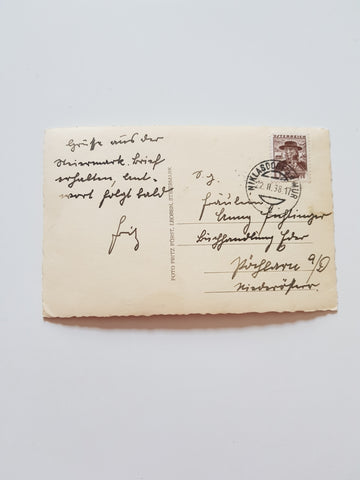 Grüße aus der
Steiermark. Brief
erhalten, Ant-
wort folgt bald
Fritz
FOTO FRITZ FÜRST, LEOBEN, STEIERMARK
ÖSTERREICH
NIKLASDORF
22. II. 38. 17
Fräulein
Buchhandlung Eder
Pöchlarn a/D
Niederösterr.